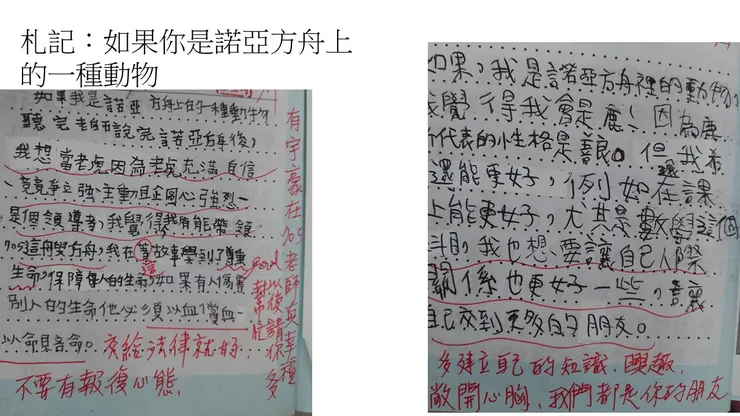 札記：如果你是諾亞方舟上
的一種動物
如果我是諾亞方舟上的一種動物
聽完老師說完諾亞方舟後，
我想當老虎因為老虎充滿自信
、競爭力強主動且企圖心強烈、
是個領導者，我覺得我有能帶領
705這舟學方舟，我在這故事學到了尊重
生命，保障任人的生命，如果有人傷害
別人的生命他必須以血償血、
以命
交給法律就好，
不要有報復心態，
有宇豪在705老師真幸福
good
以後請你多
幫忙
如果，我是諾亞方舟裡的動物，
我覺得我會是鹿！因為鹿
所代表的小生格是善良。但我希
還能更好，例如在課
上能更好，尤其是數學這個
科目，我也想要讓自己人際
關係也更好一些，
自己交到更多的朋友。
多建立自己的知識、興趣，
敞開心胸，我們都是你的朋友